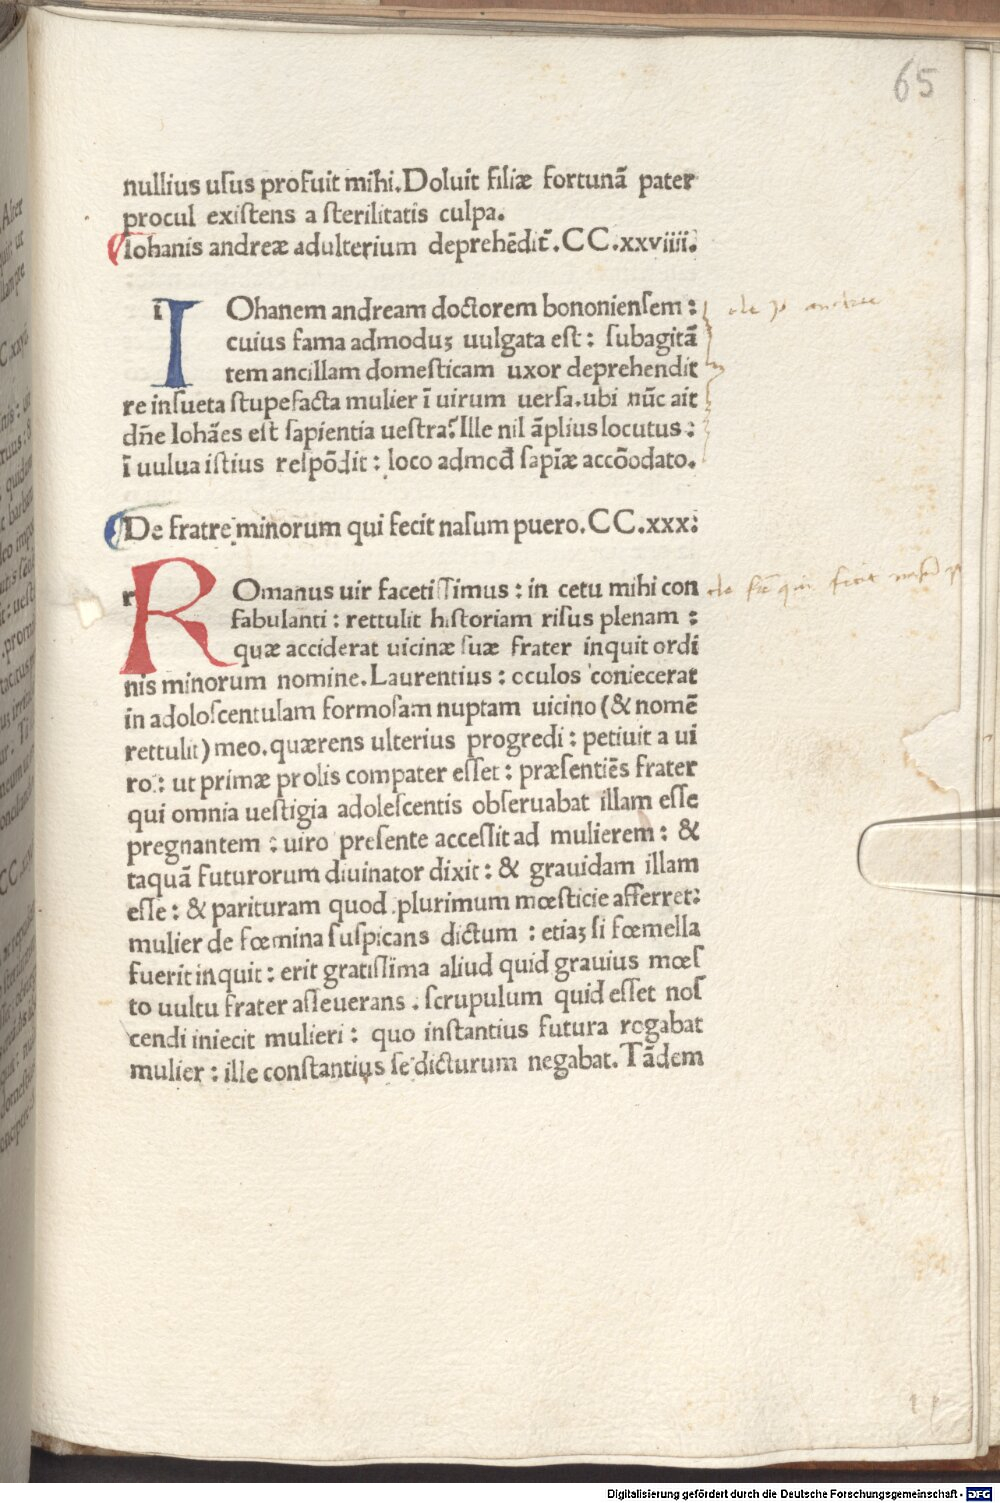 65
nullius uſus profuit mihi. Doluit filiæ fortunã pater
procul exiſtens a ſterilitatis culpa.
Iohanis andreæ adulterium deprehẽdit̃. CC.xxviiii.
IOhanem andream doctorem bononienſem :
cuius fama admoduꝫ uulgata eſt : ſubagitã
tem ancillam domeſticam uxor deprehendit
re inſueta ſtupefacta mulier ĩ uirum uerſa. ubi nũc ait
dñe Iohães eſt ſapientia ueſtra? Ille nil ãplius locutus :
ĩ uulua iſtius reſpõdit : loco admod̃ ſapiæ accõodato.
De fratre minorum qui fecit naſum puero. CC.xxx:
ROmanus uir facetiſſimus : in cetu mihi con
fabulanti : rettulit hiſtoriam riſus plenam :
quæ acciderat uicinæ ſuæ frater inquit ordi
nis minorum nomine. Laurentius : oculos coniecerat
in adoloſcentulam formoſam nuptam uicino (& nomẽ
rettulit) meo. quærens ulterius progredi : petiuit a ui
ro : ut primæ prolis compater eſſet : præſentiẽs frater
qui omnia ueſtigia adoleſcentis obſeruabat illam eſſe
pregnantem : uiro preſente acceſſit ad mulierem : &
taquã futurorum diuinator dixit : & grauidam illam
eſſe : & parituram quod plurimum mœſticie afferret:
mulier de fœmina ſuſpicans dictum : etiaꝫ ſi fœmella
fuerit inquit : erit gratiſſima aliud quid grauius mœſ
to uultu frater aſſeuerans . ſcrupulum quid eſſet noſ
cendi iniecit mulieri : quo inſtantius futura rogabat
mulier : ille conſtantius ſe dicturum negabat. Tãdem
Digitalisierung gefördert durch die Deutsche Forschungsgemeinschaft - DFG